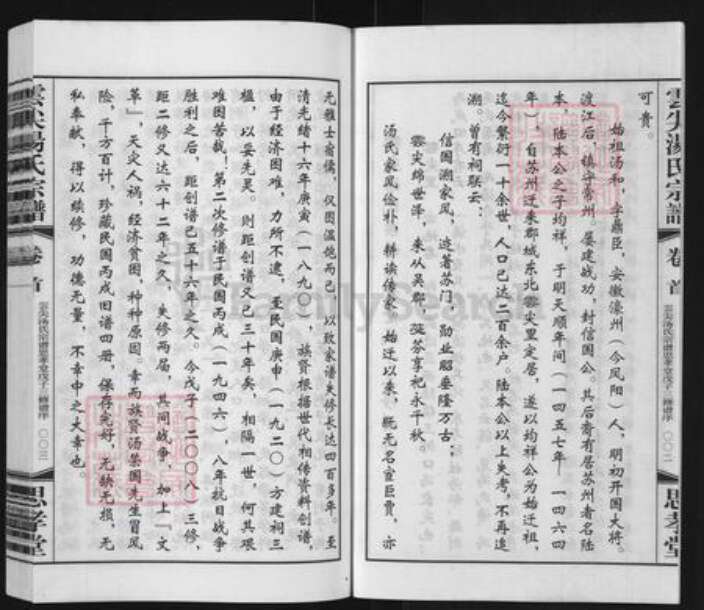 可贵。
始祖汤和，字鼎臣，安徽濠州（今凤阳）人，明初开国大将。
渡江后，镇守常州，屡建战功，封信国公。其后裔有居苏州者名陆
本，陆本公之子均祥，于明天顺年间（一四五七年—一四六四
年）自苏州迁来郡城东北云尖里定居，遂以均祥公为始迁祖，
迄今繁衍一十余世，人口已达二百余户。陆本公以上失考，不再追
溯。曾有祠联云：
信国溯家风，迹著苏门，勋业昭垂隆万古；
云尖绵世泽，来从吴郡，蒸芬享祀永千秋。
汤氏家风俭朴，耕读传家，始迁以来，既无名宦巨贾，亦
雲尖湯氏宗譜
卷首
云尖汤氏宗谱思孝堂戊子三修谱序
〇〇二
思孝堂
无雅士宿儒，仅图温饱而已，以致家谱失修长达四百多年。至
清光绪十六年庚寅（一八九〇），族贤根据世代相传资料创谱，
由于经济困难，力所不逮，至民国庚申（一九二〇）方建祠三
楹，以妥先灵。则距创谱又已三十年矣，相隔一世，何其艰
难困苦哉！第二次修谱于民国丙戌（一九四六），八年抗日战争
胜利之后，距创谱已五十六年之久。今戊子（二〇〇八）三修，
距二修又达六十二年之久，失修两届，其间战争，加上「文
革」，天灾人祸，经济贫困，种种原因。幸而族贤汤荣国先生冒风
险，千方百计，珍藏民国丙戌旧谱四册，保存完好，无缺无损，无
私奉献，得以续修，功德无量，不幸中之大幸也。
雲尖湯氏宗譜
卷首
云尖汤氏宗谱思孝堂戊子三修谱序
〇〇三
思孝堂
FamilySearch